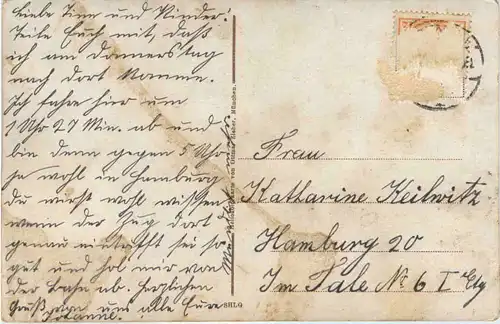 Liebe Tinn und Kinder!
Teile Euch mit, daß
ich am Donnerstag
nach dort komme.
Ich fahre hier um
1 Uhr 27 Min. ab und
bin denn gegen 5 Uhr
ja wohl in Hamburg
du wirst wohl wissen
wenn der Zug dort
genau eintrifft sei so
gut und hol mir von
der Bahn ab. Herzlichen
Gruß an uns alle Eure
Frau
Katharine Keilwitz
Hamburg 20
Im Tale No 6 I Etg
SHLG